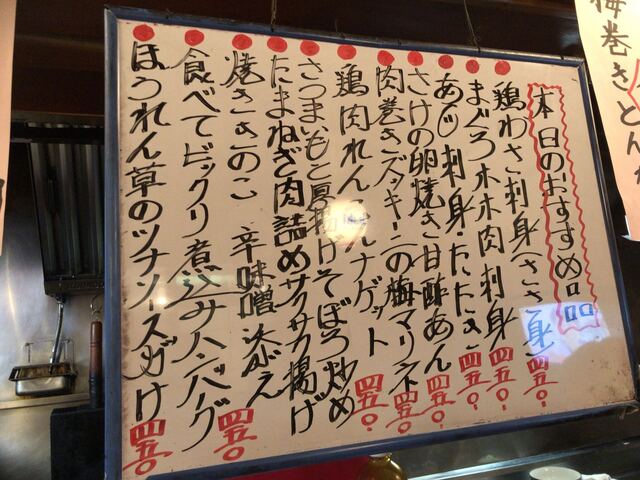 梅巻きとんか
本日のおすすめ品
鶏わさ刺身(ささ身) 四五〇
まぐろホホ肉刺身 四五〇
あじ刺身たたき 四五〇
さけの卵焼き甘酢あん 四五〇
肉巻きズッキーニの梅マリネ 四五〇
鶏肉れんこんナゲット 四五〇
さつまいもと厚揚げそぼろ炒め
たまねぎ肉詰めサクサク揚げ
焼ききのこ 辛味噌添がえ
食べてビックリ煮込みハンバーグ 四五〇
ほうれん草のツナソースがけ 四五〇